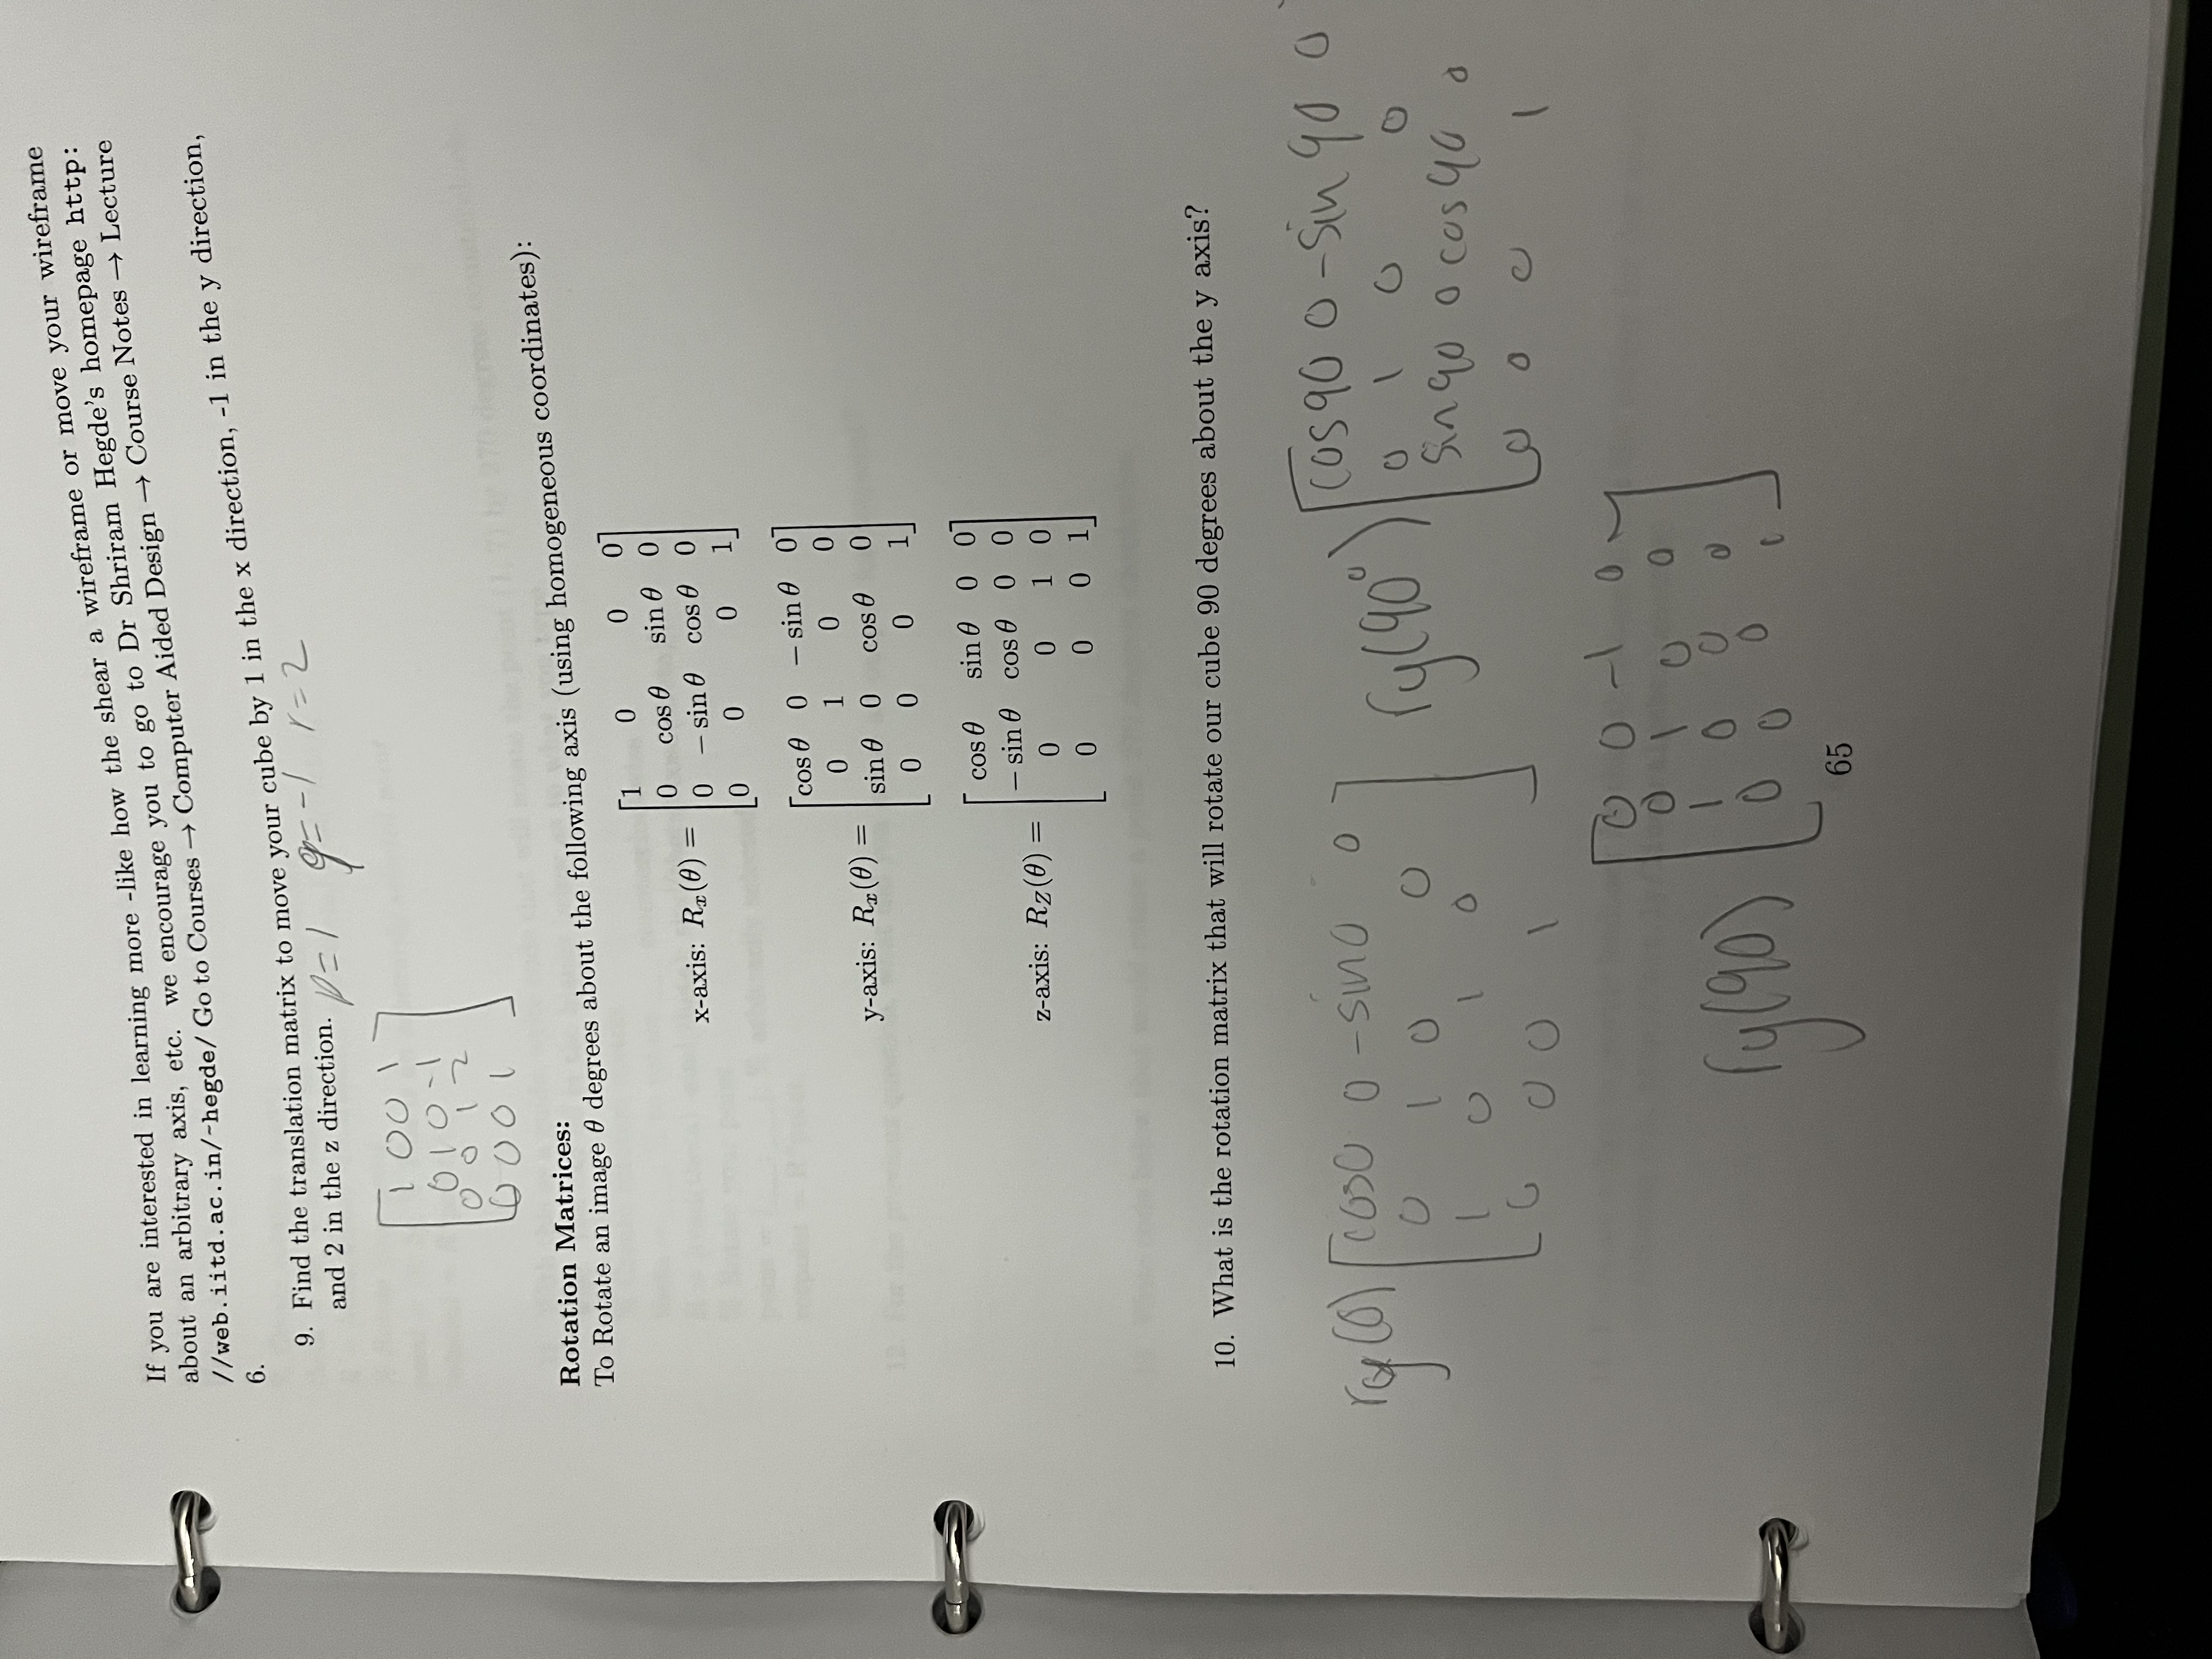 If you are interested in learning more -like how the shear a wireframe or move your wireframe
about an arbitrary axis, etc. we encourage you to go to Dr Shriram Hegde's homepage http:
//web.iitd.ac.in/~hegde/ Go to Courses → Computer Aided Design → Course Notes → Lecture
6.
9. Find the translation matrix to move your cube by 1 in the x direction, -1 in the y direction,
and 2 in the z direction. p=1 q=-1 r=2
1 0 0 1
0 1 0 -1
0 0 1 2
0 0 0 1
Rotation Matrices:
To Rotate an image θ degrees about the following axis (using homogeneous coordinates):
1 0 0 0
0 cos θ sin θ 0
x-axis: Rx(θ) =
0 − sin θ cos θ 0
0 0 0 1
cos θ 0 − sin θ 0
0 1 0 0
y-axis: Rx(θ) =
sin θ 0 cos θ 0
0 0 0 1
cos θ sin θ 0 0
− sin θ cos θ 0 0
z-axis: RZ(θ) =
0 0 1 0
0 0 0 1
10. What is the rotation matrix that will rotate our cube 90 degrees about the y axis?
ry(0) cos0 0 -sin0 0
0 1 0 0
1 0 1 0
0 0 0 1
ry(90°) cos90 0 -sin 90 0
0 1 0 0
sin90 0 cos90 0
0 0 0 1
ry(90)
0 0 -1 0
0 1 0 0
1 0 0 0
0 0 0 1
65